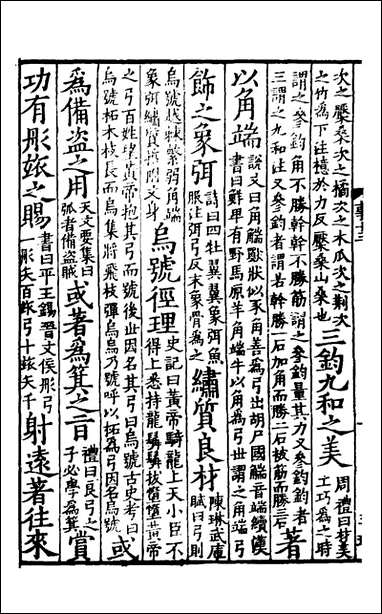 次之檿桑次之橘次之木瓜次之荊次
之竹為下注檍於力反檿桑山桑也
三鈞九和之美
周禮曰材美
工巧為之時
謂之參鈞角不勝幹幹不勝筋謂之參鈞量其力又參鈞鈞者
三謂之九和注又參鈞者謂若幹勝一石加角而勝二石被筋而勝三石
著
以角端
說文曰角觿獸狀似豕角善為弓出胡尸國觿音端續漢
書曰鮮卑有野馬原羊角端牛以角為弓世謂之角端弓
飾之象弭
詩曰四牡翼翼象弭魚
服注弭弓反末象骨為之
繡質良材
陳琳武庫
賦曰弓則
烏號越棘繁弱角端
象弭繡質拊文身
烏號徑理
史記曰黃帝騎龍上天小臣不
得上悉持龍髯髯拔墮墮黃帝
之弓百姓望黃帝抱其弓而號後世因名其弓曰烏號古史考曰
烏號柘木枝長而烏集將飛枝彈烏烏乃號呼以柘為弓因名烏號
或
為備盜之用
天文要集曰
弧者備盜賊
或著為箕之言
禮曰良弓之
子必學為箕
賞
功有彤玈之賜
書曰平王錫晉文侯彤弓
一彤矢百玈弓十玈矢千
射遠著往來